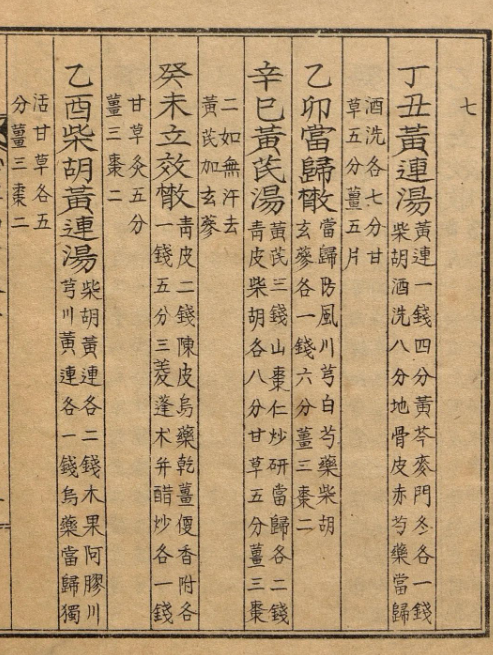 七
丁丑黃連湯
黃連一錢四分黃芩麥門冬各一錢
柴胡酒洗八分地骨皮赤芍藥當歸
酒洗各七分甘
草五分薑五片
乙卯當歸橵
當歸防風川芎白芍藥柴胡
玄蔘各一錢六分薑三棗二
辛巳黃芪湯
黃芪三錢山棗仁炒研當歸各二錢
靑皮柴胡各八分甘草五分薑三棗
二如無汗去
黃芪加玄蔘
癸未立效橵
靑皮二錢陳皮烏藥乾薑便香附各
一錢五分三菱蓬朮幷醋炒各一錢
甘草灸五分
薑三棗二
乙酉柴胡黃連湯
柴胡黃連各二錢木果阿膠川
芎川黃連各一錢烏藥當歸獨
活甘草各五
分薑三棗二